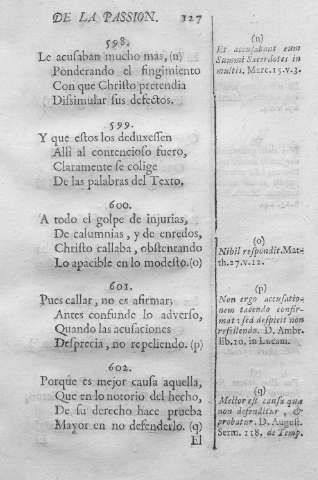 DE LA PASSION. 127
598.
Le acusaban mucho mas, (n)
Ponderando el fingimiento
Con que Christo pretendia
Dissimular sus defectos.
599.
Y que estos los deduxessen
Alli al contencioso fuero,
Claramente se colige
De las palabras del Texto.
600.
A todo el golpe de injurias,
De calumnias, y de enredos,
Christo callaba, obstentando
Lo apacible en lo modesto.(o)
601.
Pues callar, no es afirmar,
Antes confunde lo adverso,
Quando las acusaciones
Desprecia, no repeliendo. (p)
602.
Porque es mejor causa aquella,
Que en lo notorio del hecho,
De su derecho hace prueba
Mayor en no defenderlo. (q)
El
(n)
Et accusabant eum
Summi Sacerdotes in
multis. Marc.15.v.3.
(o)
Nihil respondit.Mat-
th.27.v.12.
(p)
Non ergo accusatio-
nem tacendo confir-
mat; sed despicit non
refellendo. D. Ambr.
lib.10. in Lucam.
(q)
Melior est causa quæ
non defenditur, &
probatur. D. August.
Serm. 118. de Temp.